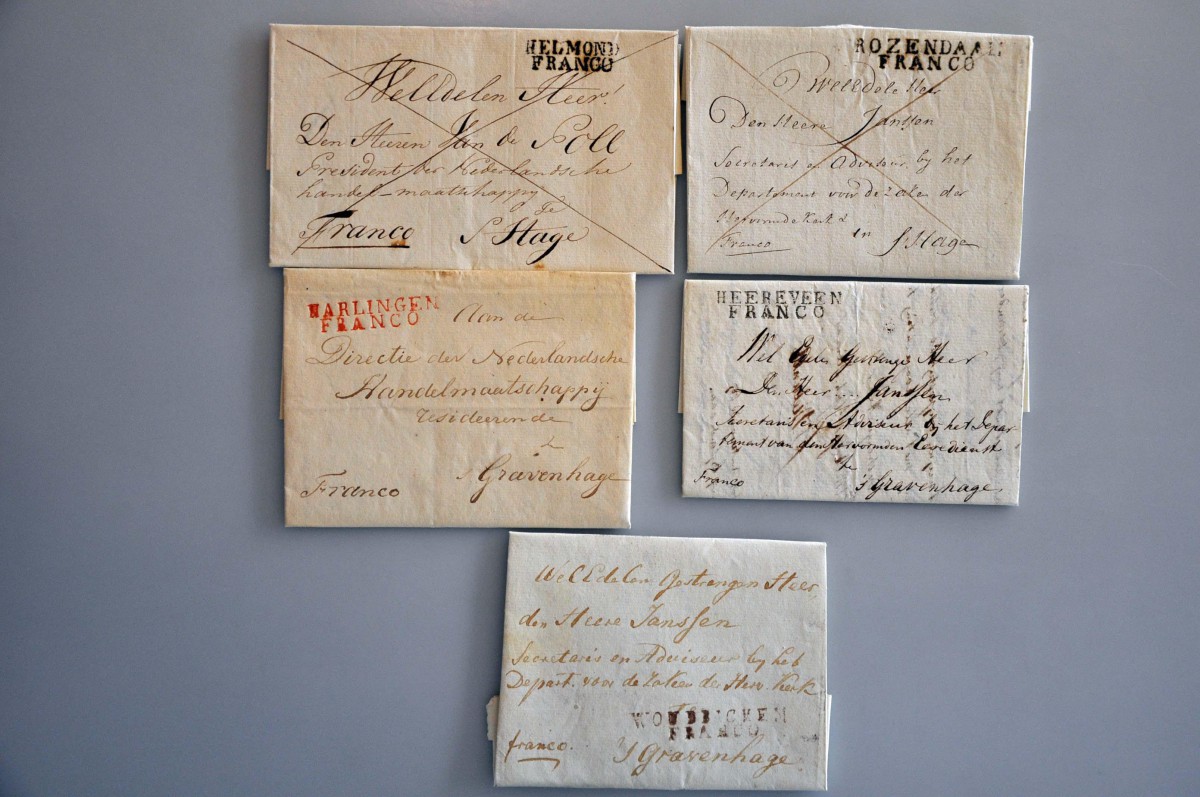 HELMOND
FRANCO
WelEdelen Heer!
Den Heeren Van de Poll
President der Nederlandsche
handel-maatschappy
Te
Franco S Hage
ROZENDAAL
FRANCO
WelEdele Heer
Den Heere Janssen
Secretaris en Adviseur by het
Departement voor de zake der
Hervormde Kerk
in
Franco S Hage
HARLINGEN
FRANCO
Aan de
Directie der Nederlandsche
Handelmaatschappij
resideerende
Franco s Gravenhage
HEEREVEEN
FRANCO
Wel Heer
Den Heer Janssen
Secretaris en Adviseur bij het Depar
tement van den Hervormden Eeredienst
te
Franco 's Gravenhage
WelEdelen Gestrengen Heer,
den Heere Janssen
Secretaris en Adviseur by het
Depart. voor de Zaken de Herv. Kerk
FRANCO
franco. 's Gravenhage